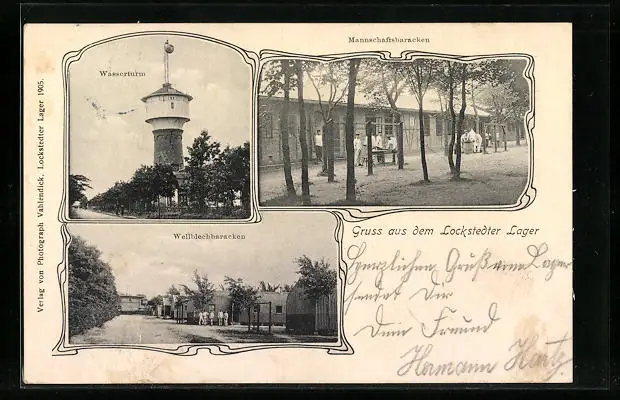 Mannschaftsbaracken
Wasserturm
Wellblechbaracken
Gruss aus dem Lockstedter Lager
Herzlichen Gruß vom Lager
sendet Dir
Dein Freund
Hermann Hartz
Verlag von Photograph Vahlendick, Lockstedter Lager 1905.